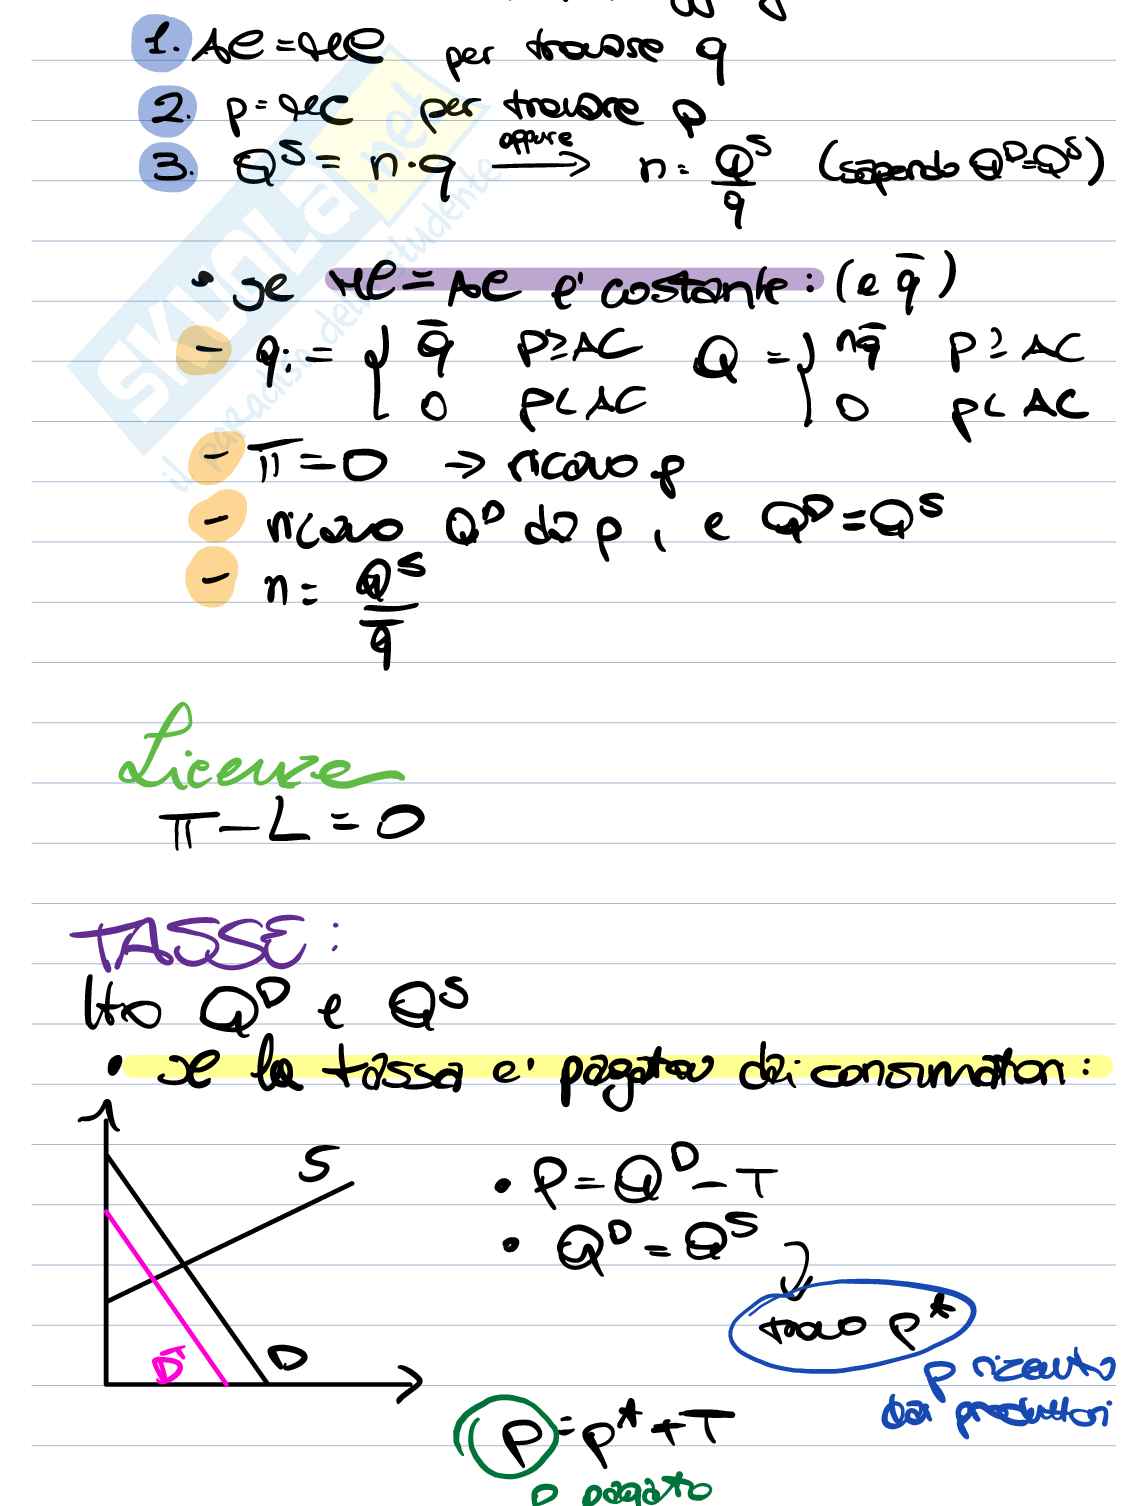 1. AC = MC per trovare q
2. p = MC per trovare p
3. Q^S = n·q oppure → n = Q^S/q (sapendo Q^D=Q^S)
• se MC = AC e' costante: (e q̄)
- qi = { q̄ p≥AC Q = { nq̄ p≥AC
0 p<AC 0 p<AC
- π = 0 → ricavo p
- ricavo Q^D da p, e Q^D = Q^S
- n = Q^S/q̄
Licenze
π - L = 0
TASSE:
Ho Q^D e Q^S
• se la tassa e' pagata dai consumatori:
S
• P = Q^D - T
• Q^D = Q^S
trovo p*
D^T D
p ricevuto
dai produttori
p = p* + T
p pagato
SKUOLA.net
il paradiso dello studente